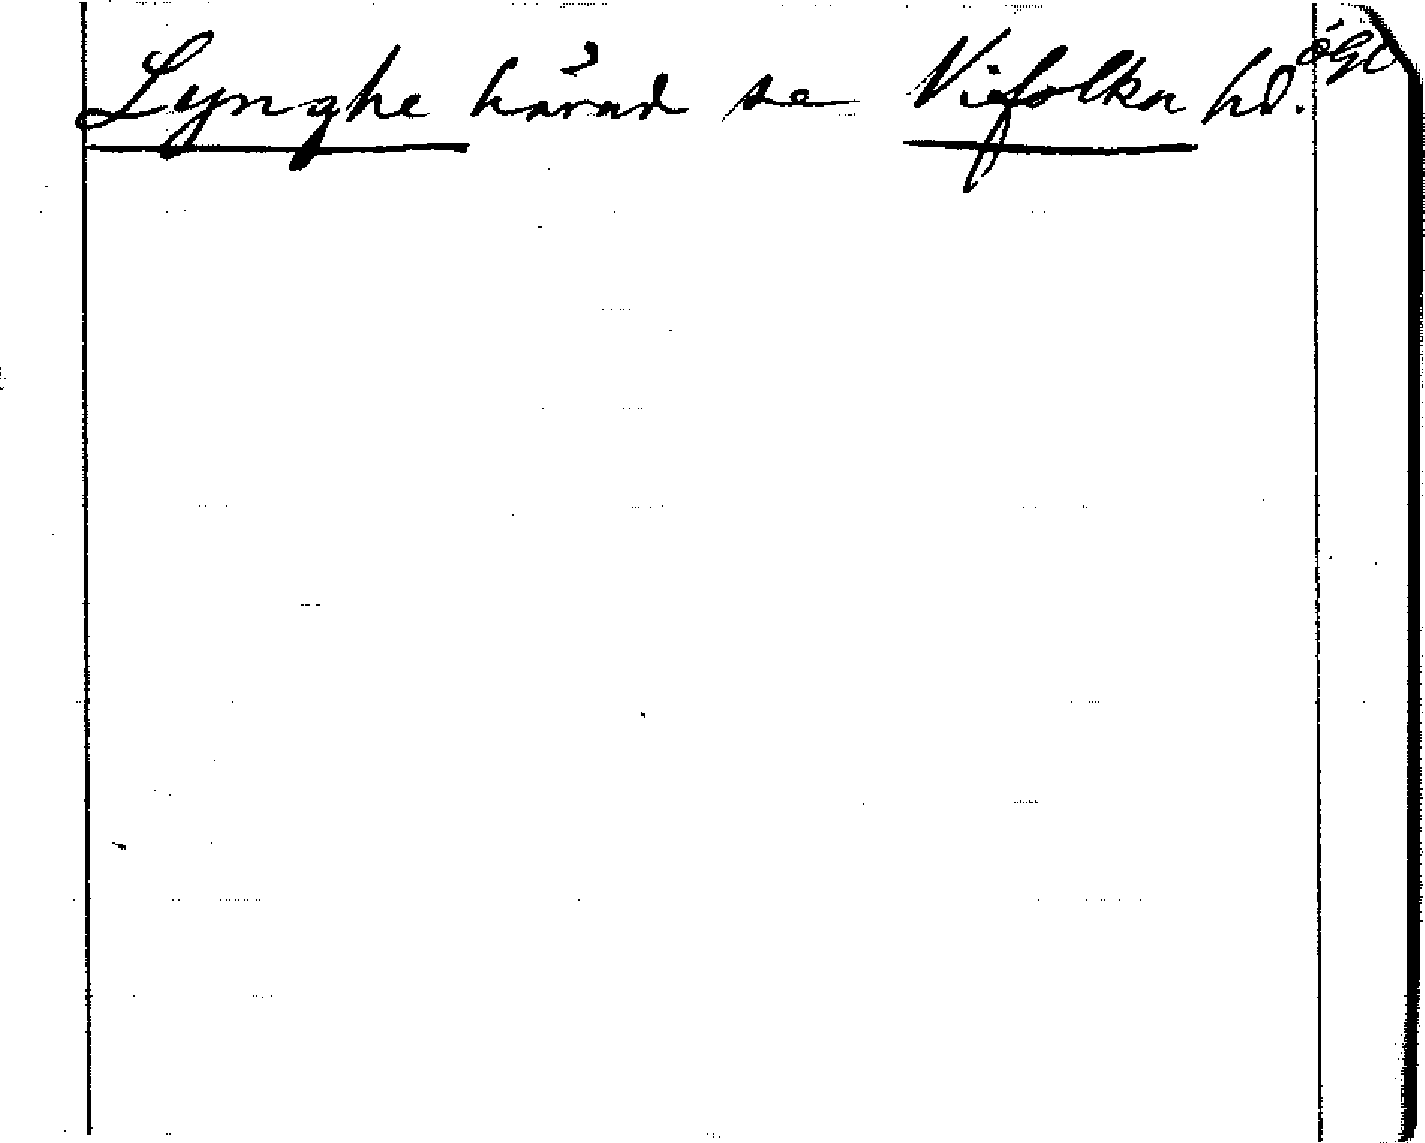 Lynghe härad se Vifolka hd. ÖGl